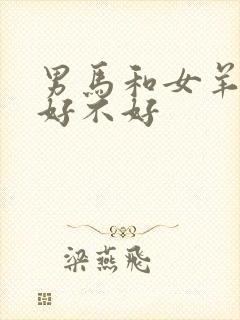 男馬和女羊
好不好
梁燕飛